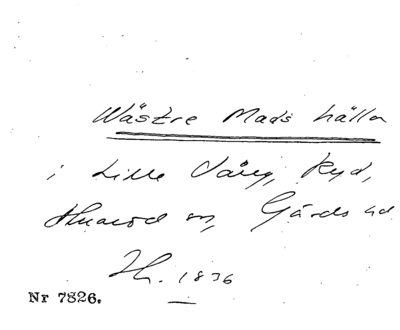 Wästre Mads hålla
i Lille Vång, Ryd,
Huaröd sn, Gärds hd
H. 1836
Nr 7826.